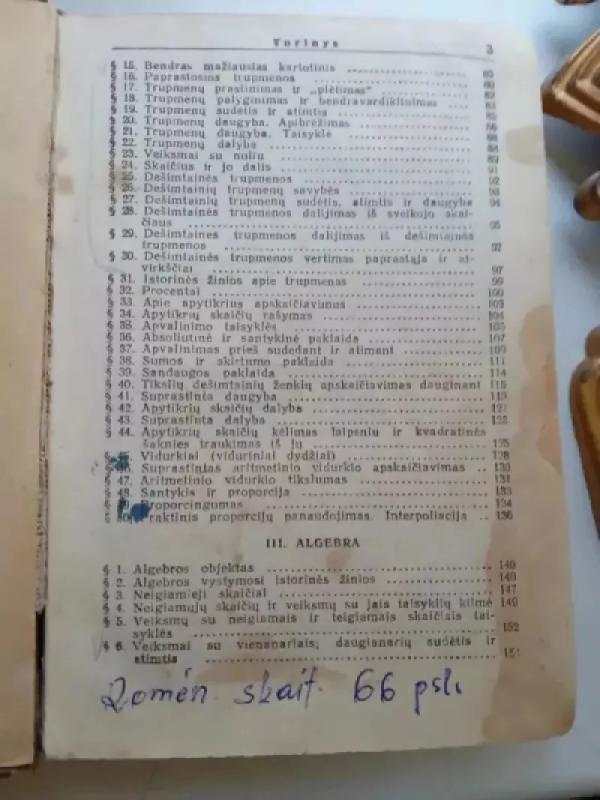 Turinys 3
§ 15. Bendras mažiausias kartotinis
§ 16. Paprastosios trupmenos
§ 17. Trupmenų prastinimas ir „plėtimas“ 82
§ 18. Trupmenų palyginimas ir bendravardiklitumas
§ 19. Trupmenų sudėtis ir atimtis
§ 20. Trupmenų daugyba. Apibrėžimas
§ 21. Trupmenų daugyba. Taisyklė
§ 22. Trupmenų dalyba
§ 23. Veiksmai su nuliu 89
§ 24. Skaičius ir jo dalis 91
§ 25. Dešimtainės trupmenos 92
§ 26. Dešimtainių trupmenų savybės 93
§ 27. Dešimtainių trupmenų sudėtis, atimtis ir daugyba 94
§ 28. Dešimtainės trupmenos dalijimas iš sveikojo skai-
čiaus 95
§ 29. Dešimtainės trupmenos dalijimas iš dešimtainės
trupmenos
§ 30. Dešimtainės trupmenos vertimas paprastąja ir at-
virkščiai 97
§ 31. Istorinės žinios apie trupmenas 99
§ 32. Procentai 100
§ 33. Apie apytikrius apskaičiavimus 103
§ 34. Apytikrių skaičių rašymas 104
§ 35. Apvalinimo taisyklės 105
§ 36. Absoliutinė ir santykinė paklaida 107
§ 37. Apvalinimas prieš sudedant ir atimant 109
§ 38. Sumos ir skirtumo paklaida 111
§ 39. Sandaugos paklaida 114
§ 40. Tikslių dešimtainių ženklų apskaičiavimas dauginant 115
§ 41. Suprastinta daugyba
§ 42. Apytikrių skaičių dalyba 121
§ 43. Suprastinta dalyba
§ 44. Apytikrių skaičių kėlimas laipsniu ir kvadratinės
šaknies traukimas iš jų
Vidurkiai (viduriniai dydžiai) 128
Suprastintas aritmetinio vidurkio apskaičiavimas 130
§ 47. Aritmetinio vidurkio tikslumas 131
§ 48. Santykis ir proporcija 133
Proporcingumas 134
Praktinis proporcijų panaudojimas. Interpoliacija 136
III. ALGEBRA
§ 1. Algebros objektas 140
§ 2. Algebros vystymosi istorinės žinios
§ 3. Neigiamieji skaičiai 147
§ 4. Neigiamųjų skaičių ir veiksmų su jais taisyklių kilmė 149
§ 5. Veiksmų su neigiamais ir teigiamais skaičiais tai-
syklės 152
§ 6. Veiksmai su vienanariais; daugianarių sudėtis ir
atimtis
Romėn. skait. 66 psl.